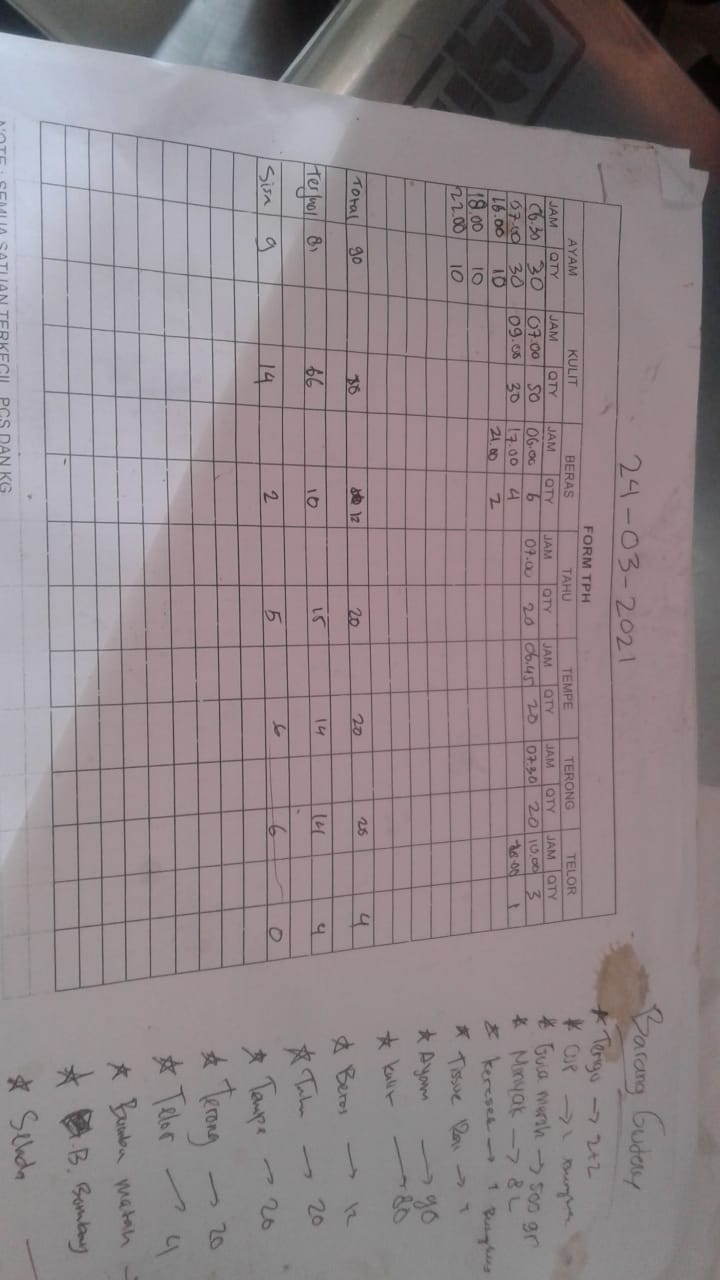 24-03-2021
FORM TPH
AYAM KULIT BERAS TAHU TEMPE TERONG TELOR
JAM QTY JAM QTY JAM QTY JAM QTY JAM QTY JAM QTY JAM QTY
06.30 30 07.00 50 06.00 6 07.00 20 06.45 20 07.30 20 10.00 3
07.00 30 09.00 30 17.00 4 1
16.00 10 21.00 2
18.00 10
22.00 10
Total 90 80 12 20 20 20 4
Terjual 81 66 10 15 14 14 4
Sisa 9 14 2 5 6 6 0
NOTE : SEMUA SATUAN TERKECIL PCS DAN KG
Barang Gudang
* →
* Cup → 1
* Gula merah → 500 gr
* Minyak → 8 L
* kresek → 1 Bungkus
* Tissue → 1
* Ayam → 90
* kulit → 80
* Beras → 12
* Tahu → 20
* Tempe → 20
* Terong → 20
* Telor → 4
* Bumbu merah
* B. Bombay
* Selada